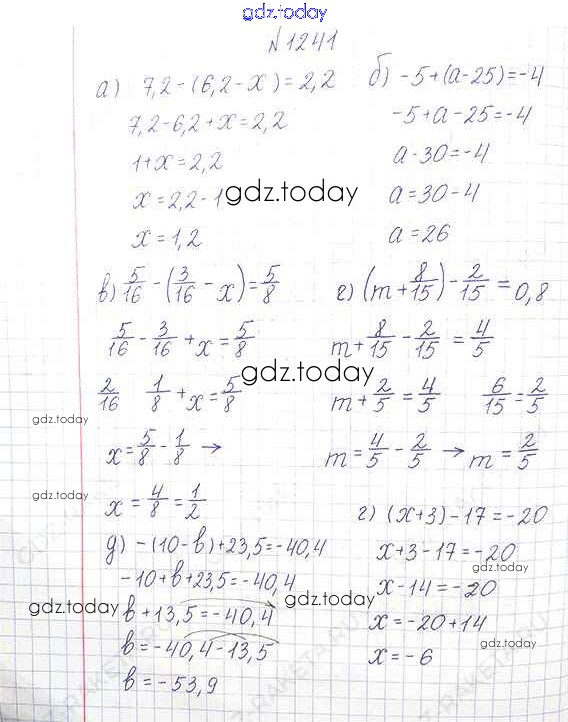 gdz.today
№1241
а) 7,2-(6,2-х)=2,2
7,2-6,2+х=2,2
1+х=2,2
х=2,2-1
х=1,2
gdz.today
б) -5+(а-25)=-4
-5+а-25=-4
а-30=-4
а=30-4
а=26
в) 5/16-(3/16-х)=5/8
5/16-3/16+х=5/8
2/16 1/8+х=5/8
х=5/8-1/8→
х=4/8=1/2
г) (m+8/15)-2/15=0,8
m+8/15-2/15=4/5
gdz.today
m+2/5=4/5 6/15=2/5
m=4/5-2/5→m=2/5
gdz.today
gdz.today
gdz.today
д) -(10-в)+23,5=-40,4
-10+в+23,5=-40,4
в+13,5=-40,4
в=-40,4-13,5
в=-53,9
gdz.today
gdz.today
г) (х+3)-17=-20
х+3-17=-20
х-14=-20
х=-20+14
х=-6
gdz.today
gdz.today